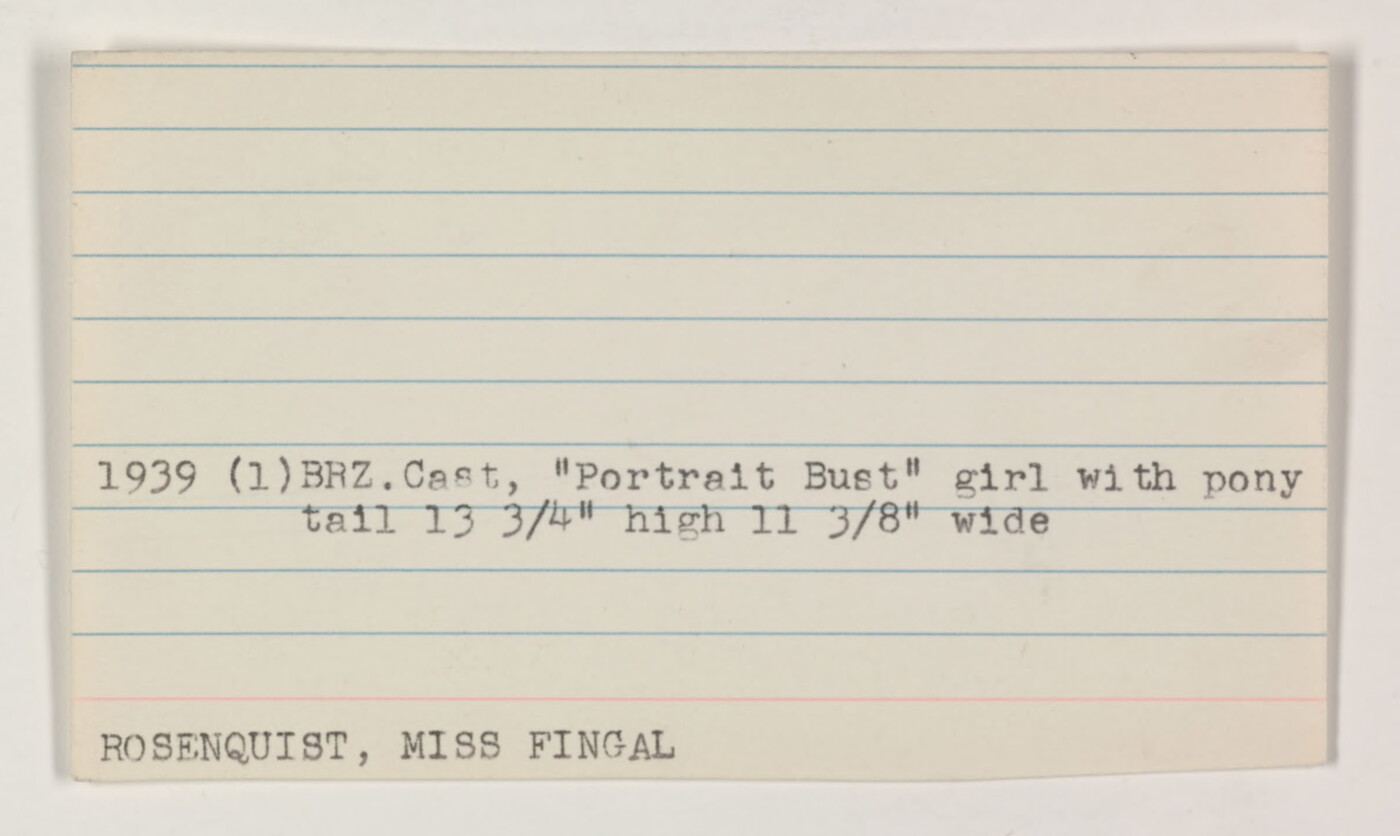 1939 (1)BRZ.Cast, "Portrait Bust" girl with pony
tail 13 3/4" high 11 3/8" wide
ROSENQUIST, MISS FINGAL